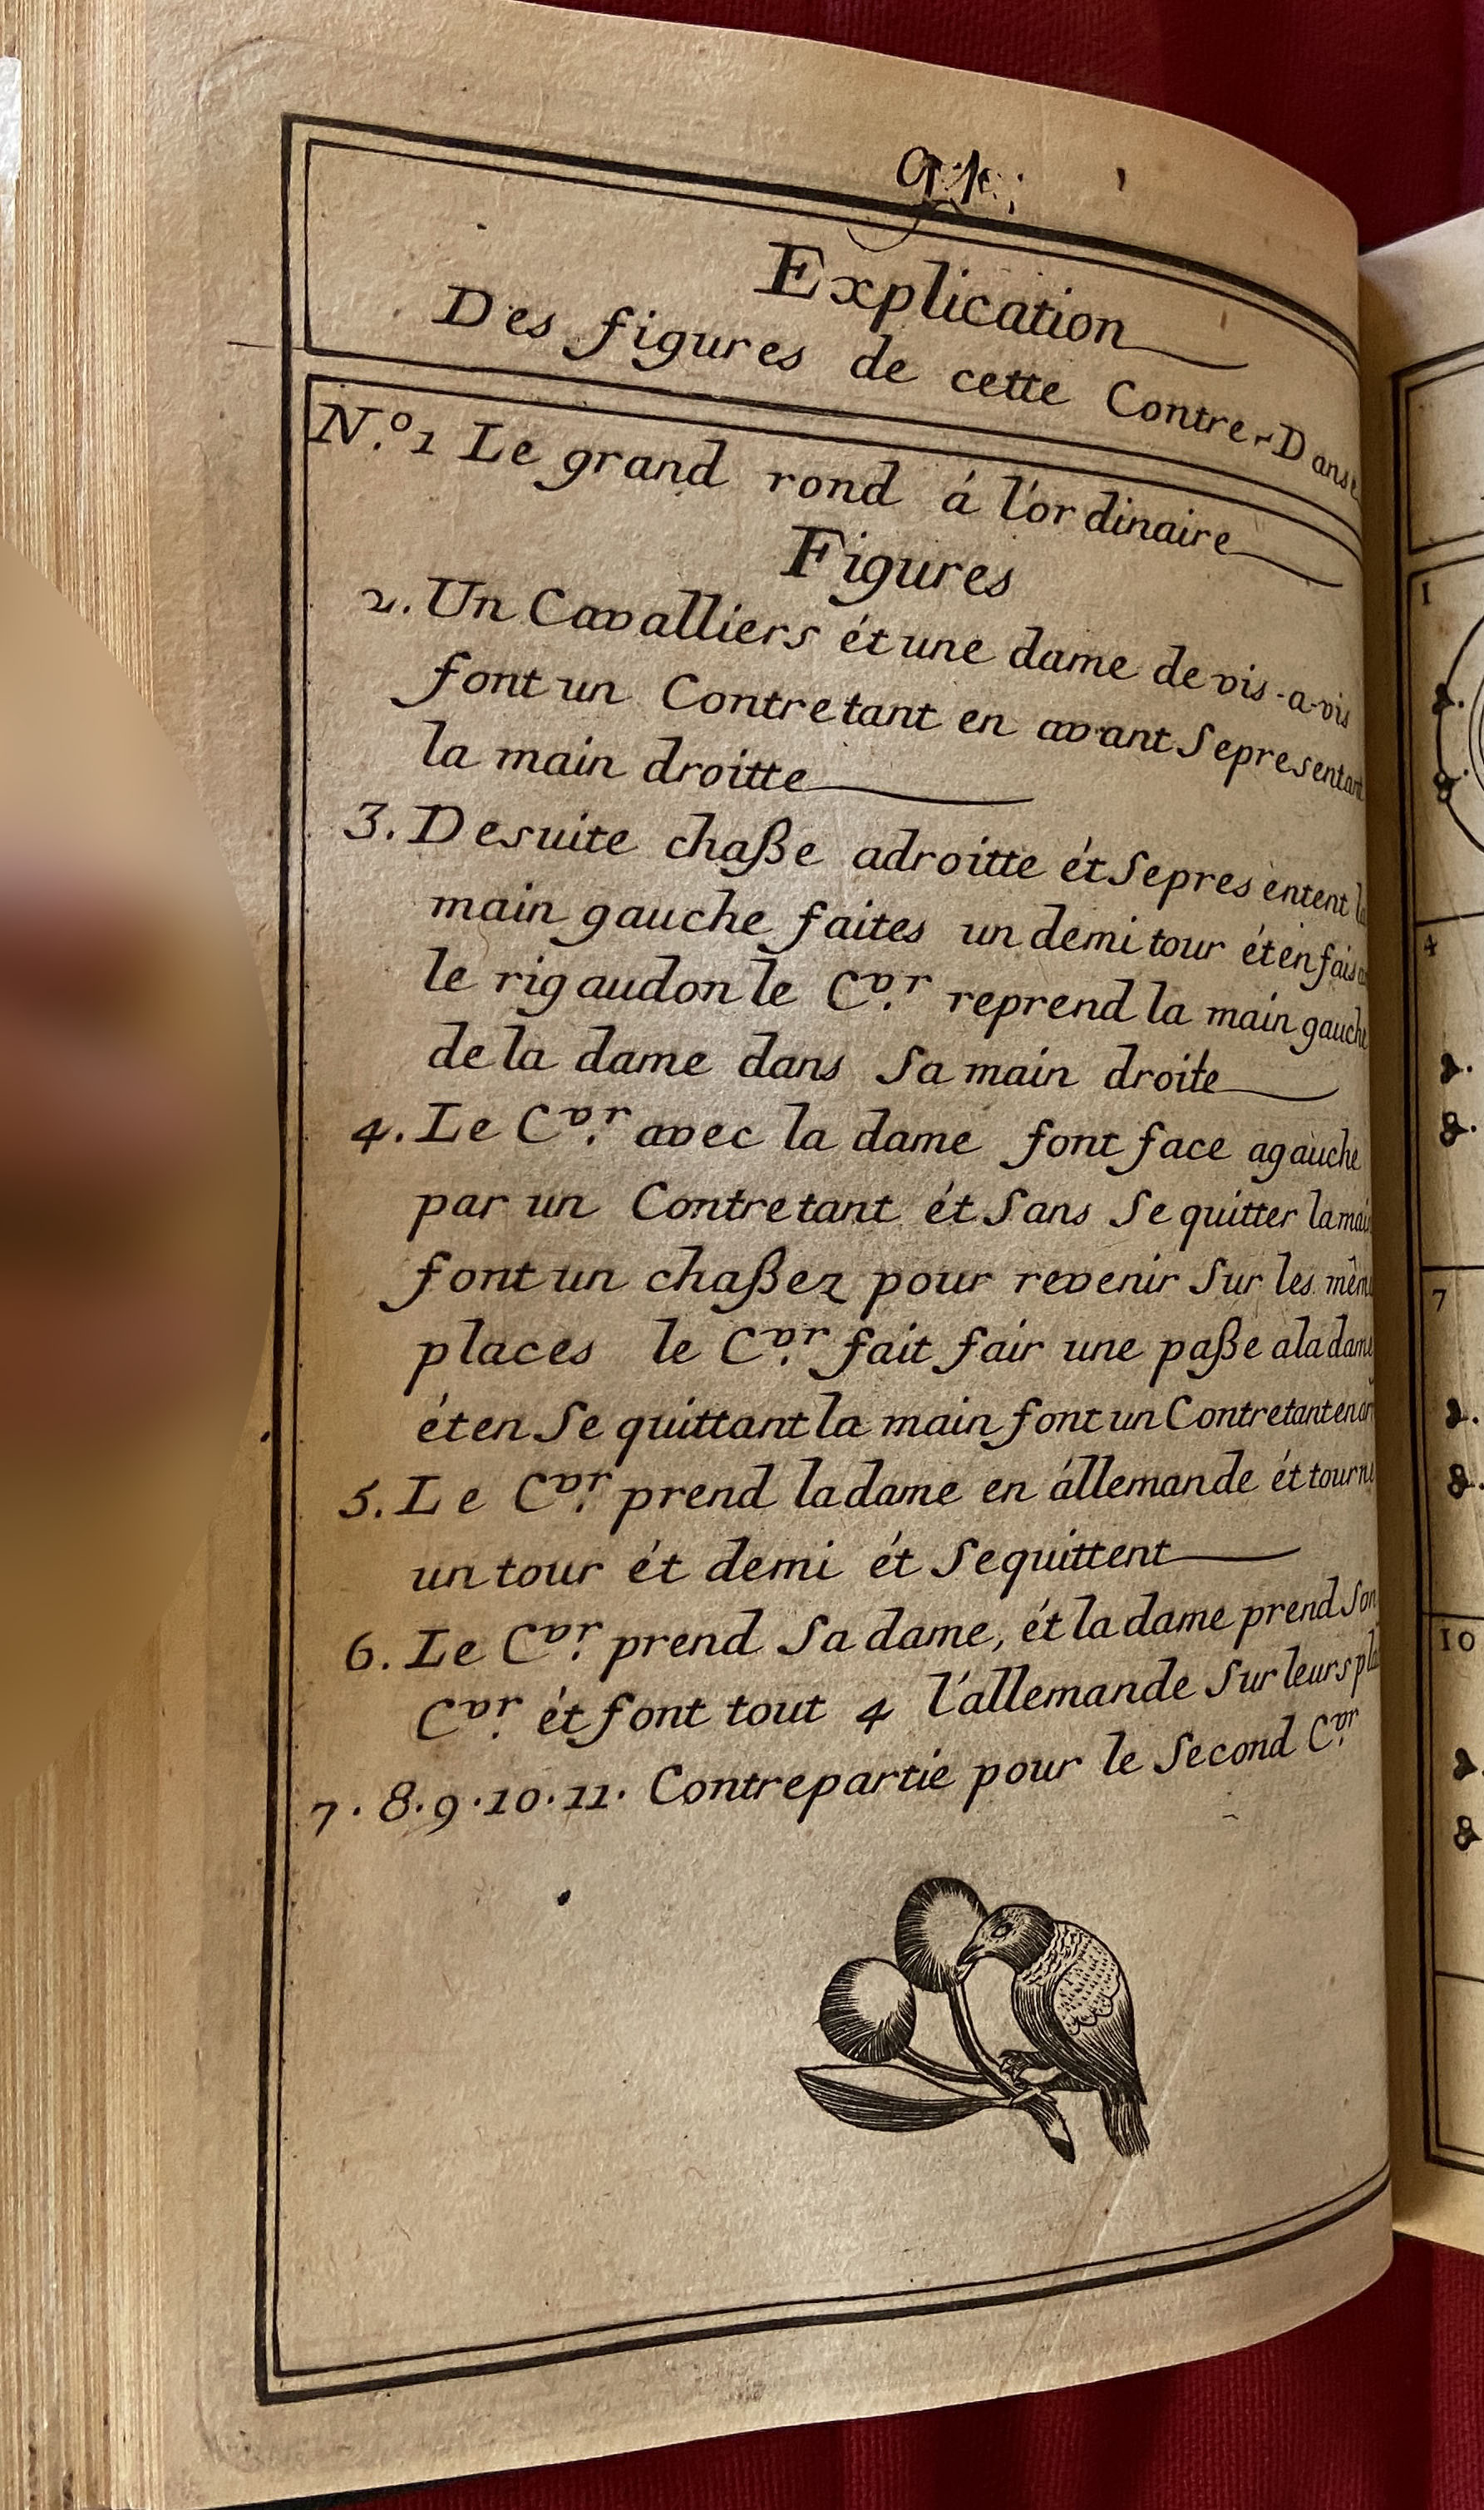 Explication
Des figures de cette Contre-Danse
N.º 1 Le grand rond á l'ordinaire
Figures
2. Un Cavalliers ét une dame de vis-a-vis
font un Contretant en avant Se presentant
la main droitte
3. De suite chaße a droitte ét Se presentent la
main gauche faites un demi tour ét en fais
le rigaudon le Cv.r reprend la main gauche
de la dame dans Sa main droite
4. Le Cv.r avec la dame font face a gauche
par un Contretant ét Sans Se quitter la main
font un chaßez pour revenir Sur les même
places le Cv.r fait fair une paße a la dame
ét en Se quittant la main font un Contretant en
5. Le Cv.r prend la dame en állemande ét tourne
un tour ét demi ét Se quittent
6. Le Cv.r prend Sa dame, ét la dame prend Son
Cv.r ét font tout 4 l'allemande Sur leurs
7. 8. 9. 10. 11. Contrepartie pour le Second Cv.r
1
4
7
10